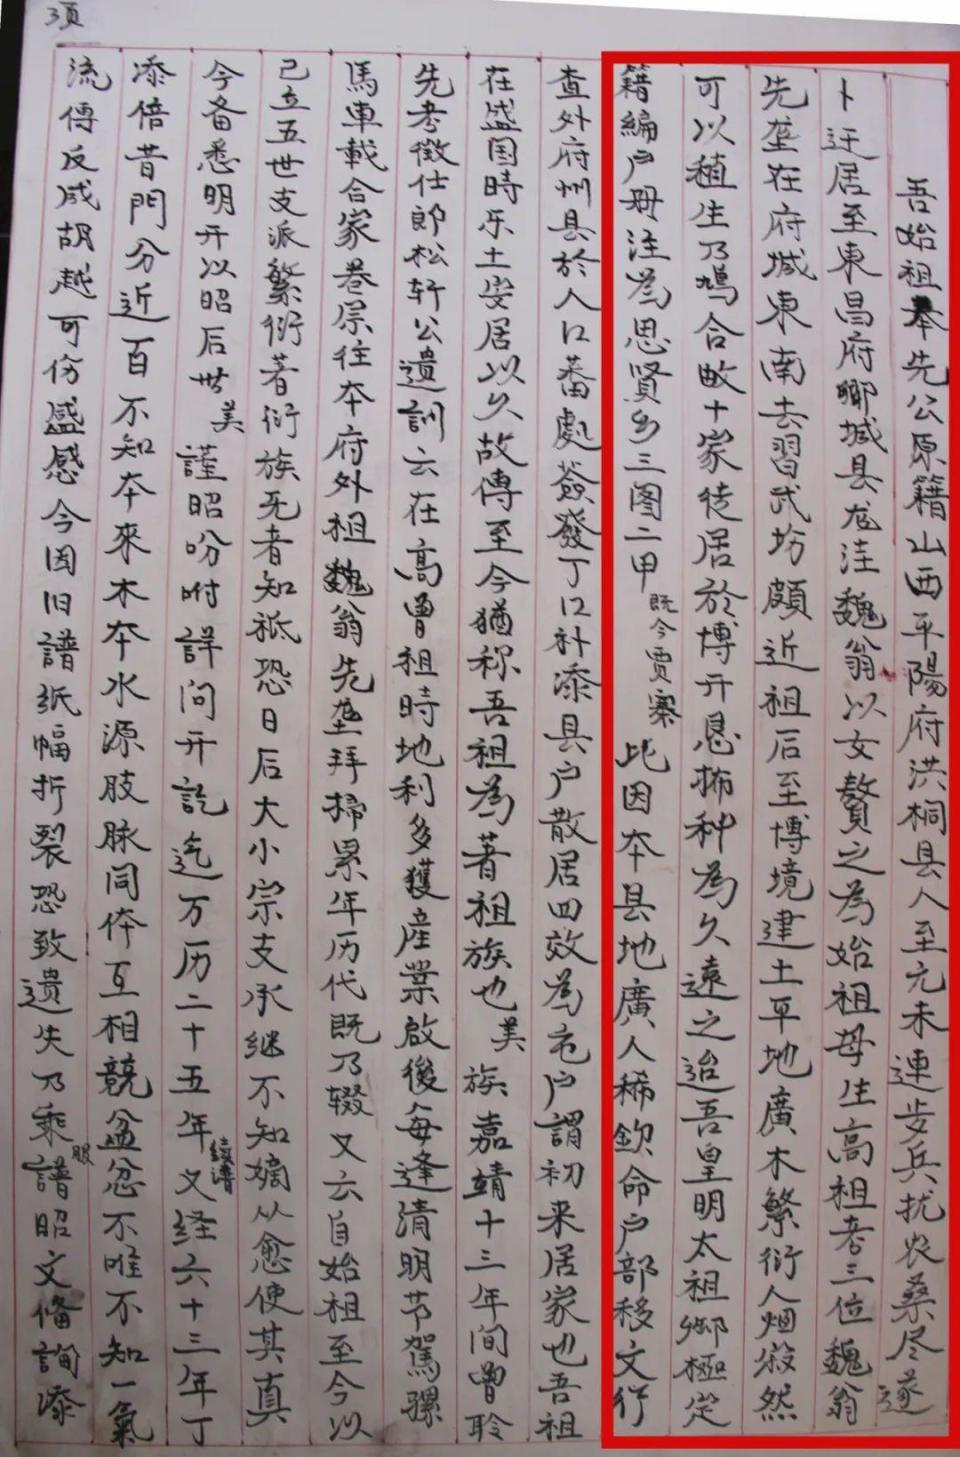 3页
吾始祖奉先公原籍山西平陽府洪桐县人至元末連步兵扰农桑尽遂
卜迁居至東昌府聊城县龙洼魏翁以女贅之為始祖母生高祖考三位魏翁
先茔在府城東南去習武坊頗近祖后至博境建土平地廣木繁衍人烟寂然
可以植生乃鳩合畝十家徒居於博开恳柨种為久遠之迨吾皇明太祖御極定
籍編户册注為思贤乡三图二甲既今贾寨此因本县地廣人稀欽命户部移文行
查外府州县於人口蕃處簽發丁口补添县户散居四效為屯户謂初来居家也吾祖
在盛国時乐土安居以久故傳至今猶称吾祖為著祖族也美族嘉靖十三年間曽聆
先考徵仕郎松轩公遺訓云在高曽祖時地利多獲産業啟後每逢清明节駕骡
馬車載合家巷层往本府外祖魏翁先茔拜掃累年历代既乃辍又云自始祖至今以
已立五世支派繁衍著衍族死者知祗恐日后大小宗支承继不知嫡从愈使其真
今备悉明开以昭后世美謹昭吩咐詳问开訖迄万历二十五年续谱又经六十三年丁
添倍昔門分近百不知本來木本水源肢脉同体互相競盆忿不唯不知一氣
流傳反成胡越可伤盛感今因旧譜紙幅折裂恐致遗失乃乘服譜昭文脩詢添